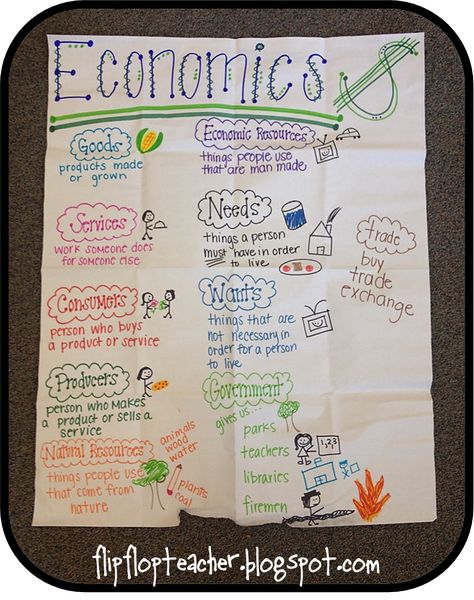 Economics $
Goods
products made
or grown
Services
work someone does
for someone else
Consumers
person who buys
a product or service
Producers
person who makes
a product or sells a
service
Natural Resources
things people use
that come from
nature
animals
wood
water
plants
coal
Economic Resources
things people use
that are man made
Needs
things a person
must have in order
to live
Wants
things that are
not necessary in
order for a person
to live
Government
gives us...
parks
teachers
1,2,3
libraries
firemen
trade
buy
trade
exchange
flipflopteacher.blogspot.com